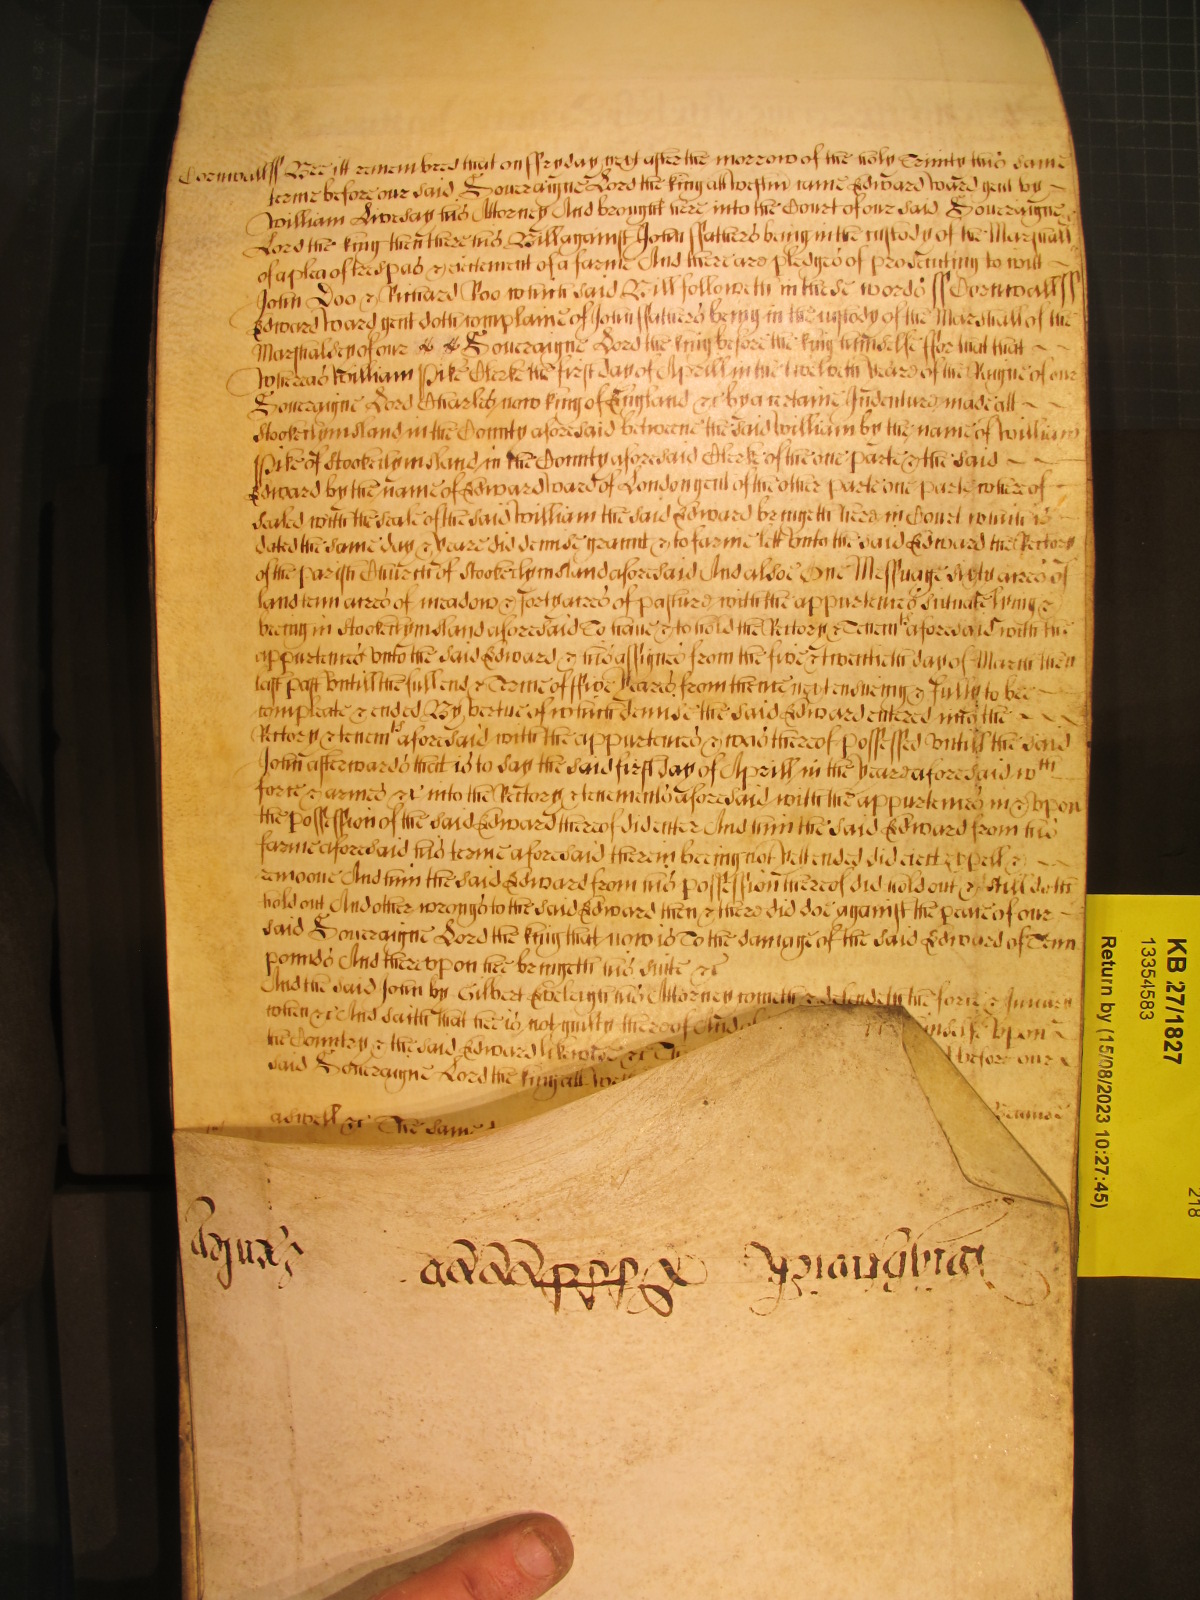 Cornwall ss Bee itt remembred that on ffryday next after the morrow of the holy Trinity this same
terme before our said Soveraigne Lord the king att Westm came Edward Ward gent by
William Livesay his Attorney And brought here into the Court of our said Soveraigne
Lord the king then there his Bill against John ffathers being in the custody of the Marshall
of a plea of trespas & eiectement of a farme And there are pledges of prosecuting to witt
John Doo & Richard Roo which said Bill followeth in these words ss Cornwall ss
Edward Ward gent doth complaine of John ffathers being in the custody of the Marshall of the
Marshalsey of our Soveraigne Lord the king before the king himselfe ffor that that
Whereas William Pike Clerke the first day of Aprill in the twelveth yeare of the Reigne of our
Soveraigne Lord Charles now king of England &c by a certaine Indenture made att
Stookeclymsland in the County aforesaid betweene the said William by the name of William
Pike of Stookeclymsland in the County aforesaid Clerke of the one parte & the said
Edward by the name of Edward Ward of London gent of the other parte one parte where of
sealed with the seale of the said William the said Edward bringeth here in Court which is
dated the same day & yeare did demise graunt & to farme lett unto the said Edward the Rectory
of the parish Church of Stookeclymsland aforesaid And alsoe One Messuage sixty acres of
land tenn acres of meadow & forty acres of pasture with the appurtenncs situate lying &
being in Stookeclymsland aforesaid To have & to hold the Rectory & Tenemts aforesaid with the
appurtenncs unto the said Edward & his assignes from the five & twentieth day of March then
last past untill the full end & Terme of ffive yeares from thence next ensueing & fully to bee
compleate & ended By vertue of which demise the said Edward entered into the
Rectory & tenemts aforesaid with the appurtenncs & was thereof possessed untill the said
John afterwards that is to say the said first day of Aprill in the yeare aforesaid wth
force & armes &c into the Rectory & tenements aforesaid with the appurtenncs in & upon
the possession of the said Edward thereof did enter And him the said Edward from his
farme aforesaid his terme aforesaid therein beeing not yett ended did eiect expell &
remoove And him the said Edward from his possession thereof did hold out & still doth
hold out And other wrongs to the said Edward then & there did doe against the peace of our
said Soveraigne Lord the king that now is To the damage of the said Edward of Tenn
pounds And thereupon hee bringeth his suite &c
And the said John by Gilbert Eveleigh his Attorney cometh & defendeth the force & Iniury
when &c And saith that hee is not guilty thereof And of himselfe upon
the Country & the said Edward likewise &c before our
said Soveraigne Lord the king att
aswell &c The same
KB 27/1827
13354583
Return by (15/08/2023 10:27:45)
218